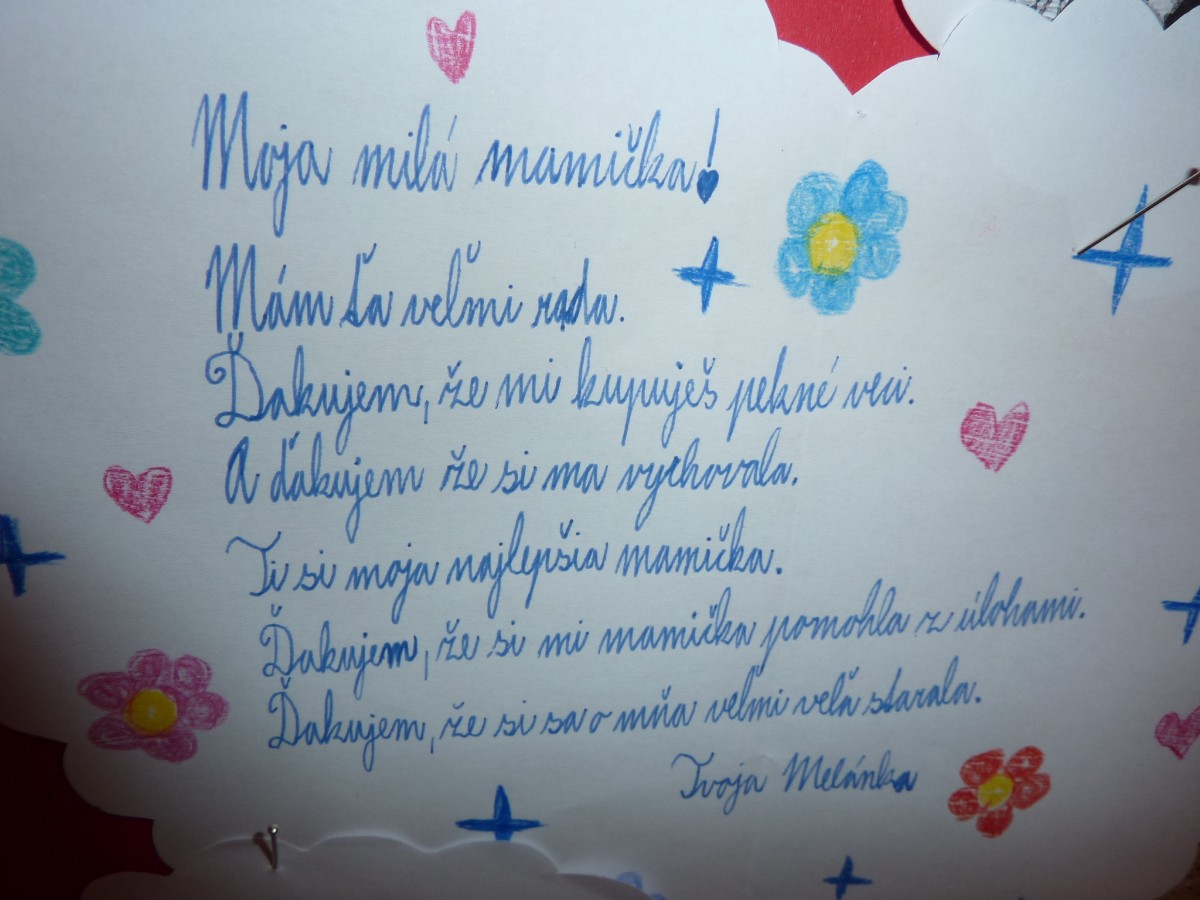 Moja milá mamička!
Mám ťa veľmi rada.
Ďakujem, že mi kupuješ pekné veci.
A ďakujem že si ma vychovala.
Ti si moja najlepšia mamička.
Ďakujem, že si mi mamička pomohla z úlohami.
Ďakujem, že si sa o mňa veľmi veľa starala.
Tvoja Melánka